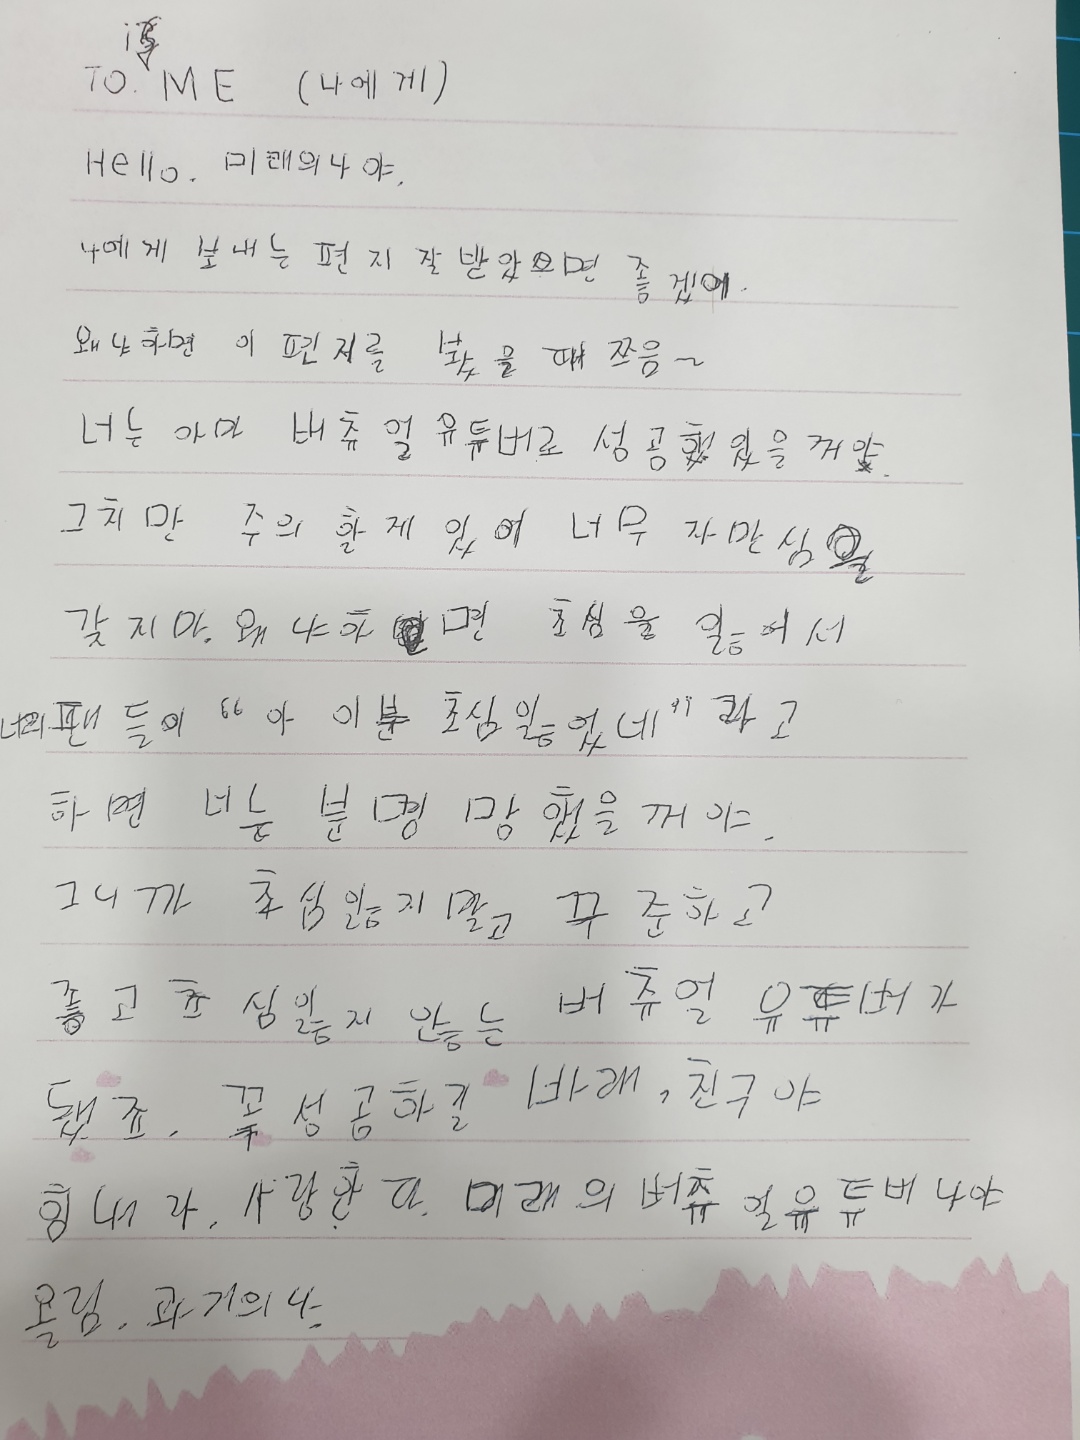 TO. ME (나에게)
Hello. 미래의나야.
나에게 보내는 편지 잘 받았으면 좋겠어.
왜냐하면 이 편지를 봤을 때 쯔음~
너는 아마 버츄얼 유튜버로 성공했었을꺼야.
그치만 주의 할게 있어 너무 자만심을
갖지마. 왜냐하면 초심을 잃어서
너의팬들이 "아 이분 초심잃었네" 라고
하면 너는 분명 망했을꺼야.
그니까 초심잃지말고 꾸준하고
좋고 초심잃지 않는 버츄얼 유튜버가
됐죠. 꼭 성공하길 바래, 친구야
힘내라. 사랑한다. 미래의 버츄얼유튜버나야
올림. 과거의나